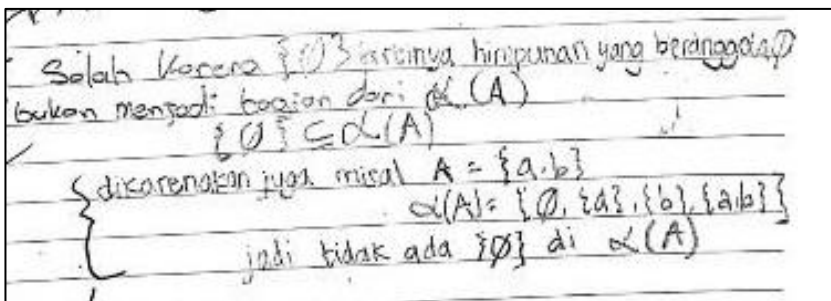 Salah karena {∅} artinya himpunan yang beranggota ∅
bukan menjadi bagian dari α(A)
{∅} ⊆ α(A)
dikarenakan juga misal A = {a,b}
α(A) = {∅, {a}, {b}, {a,b}}
jadi tidak ada {∅} di α(A)